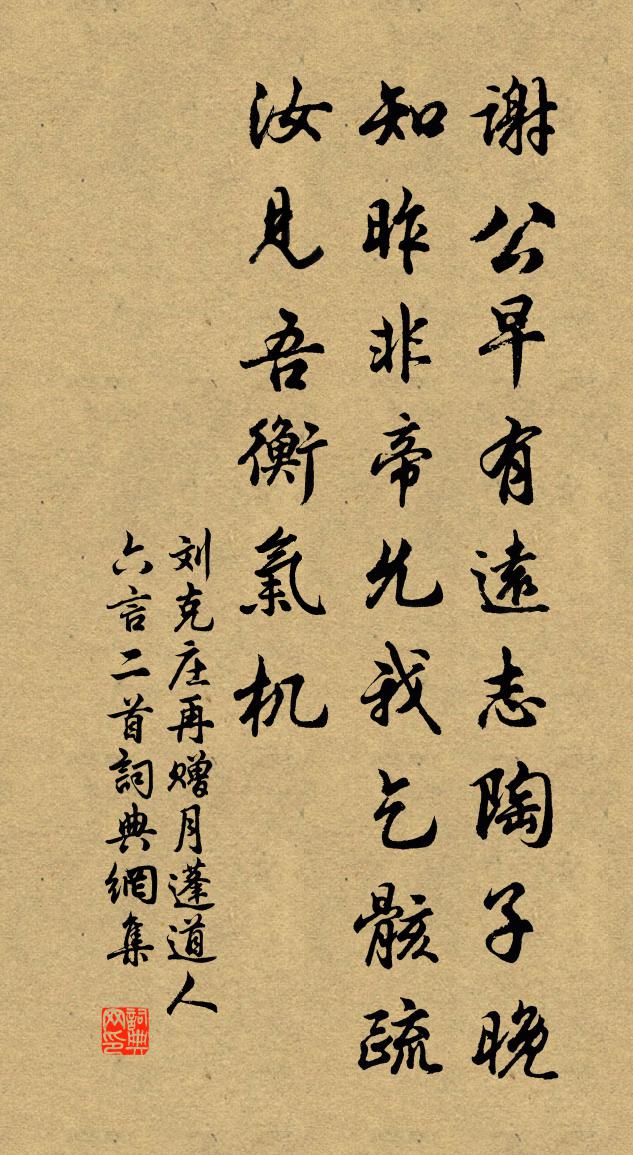 謝公早有遠志陶子晚
知昨非帝允我乞骸疏
汝見吾衡氣机
刘克庄再赠月蓬道人
六言二首詞典網集
詞典網印